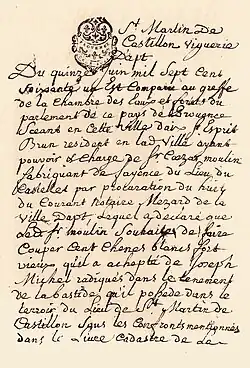 St Martin De
Castillon Viguerie
Dapt
Du quinze Juin mil Sept Cent
Soixante un Est Comparu au greffe
de la Chambre des Eaux et forets du
parlement de ce pays de Provence
Sceant en Cette Ville d'aix Sr Esprit
Brun resident en lad Ville ayant
pouvoir & Charge de Sr moulin
fabriquant de fayence du Lieu du
Castellet par procuration du huit
du Courant Notaire Mezard de la
Ville Dapt Lequel a déclaré que
Led Sr moulin Souhaite de faire
Couper Cent Chenes blancs fort
vieux qu'il a achepté de Joseph
Michel radiqués dans le tenement
de la bastide qu'il possede dans le
terroir du Lieu de St Martin de
Castillon Sous les Confronts mentionnés
dans le Livre Cadastre de Le